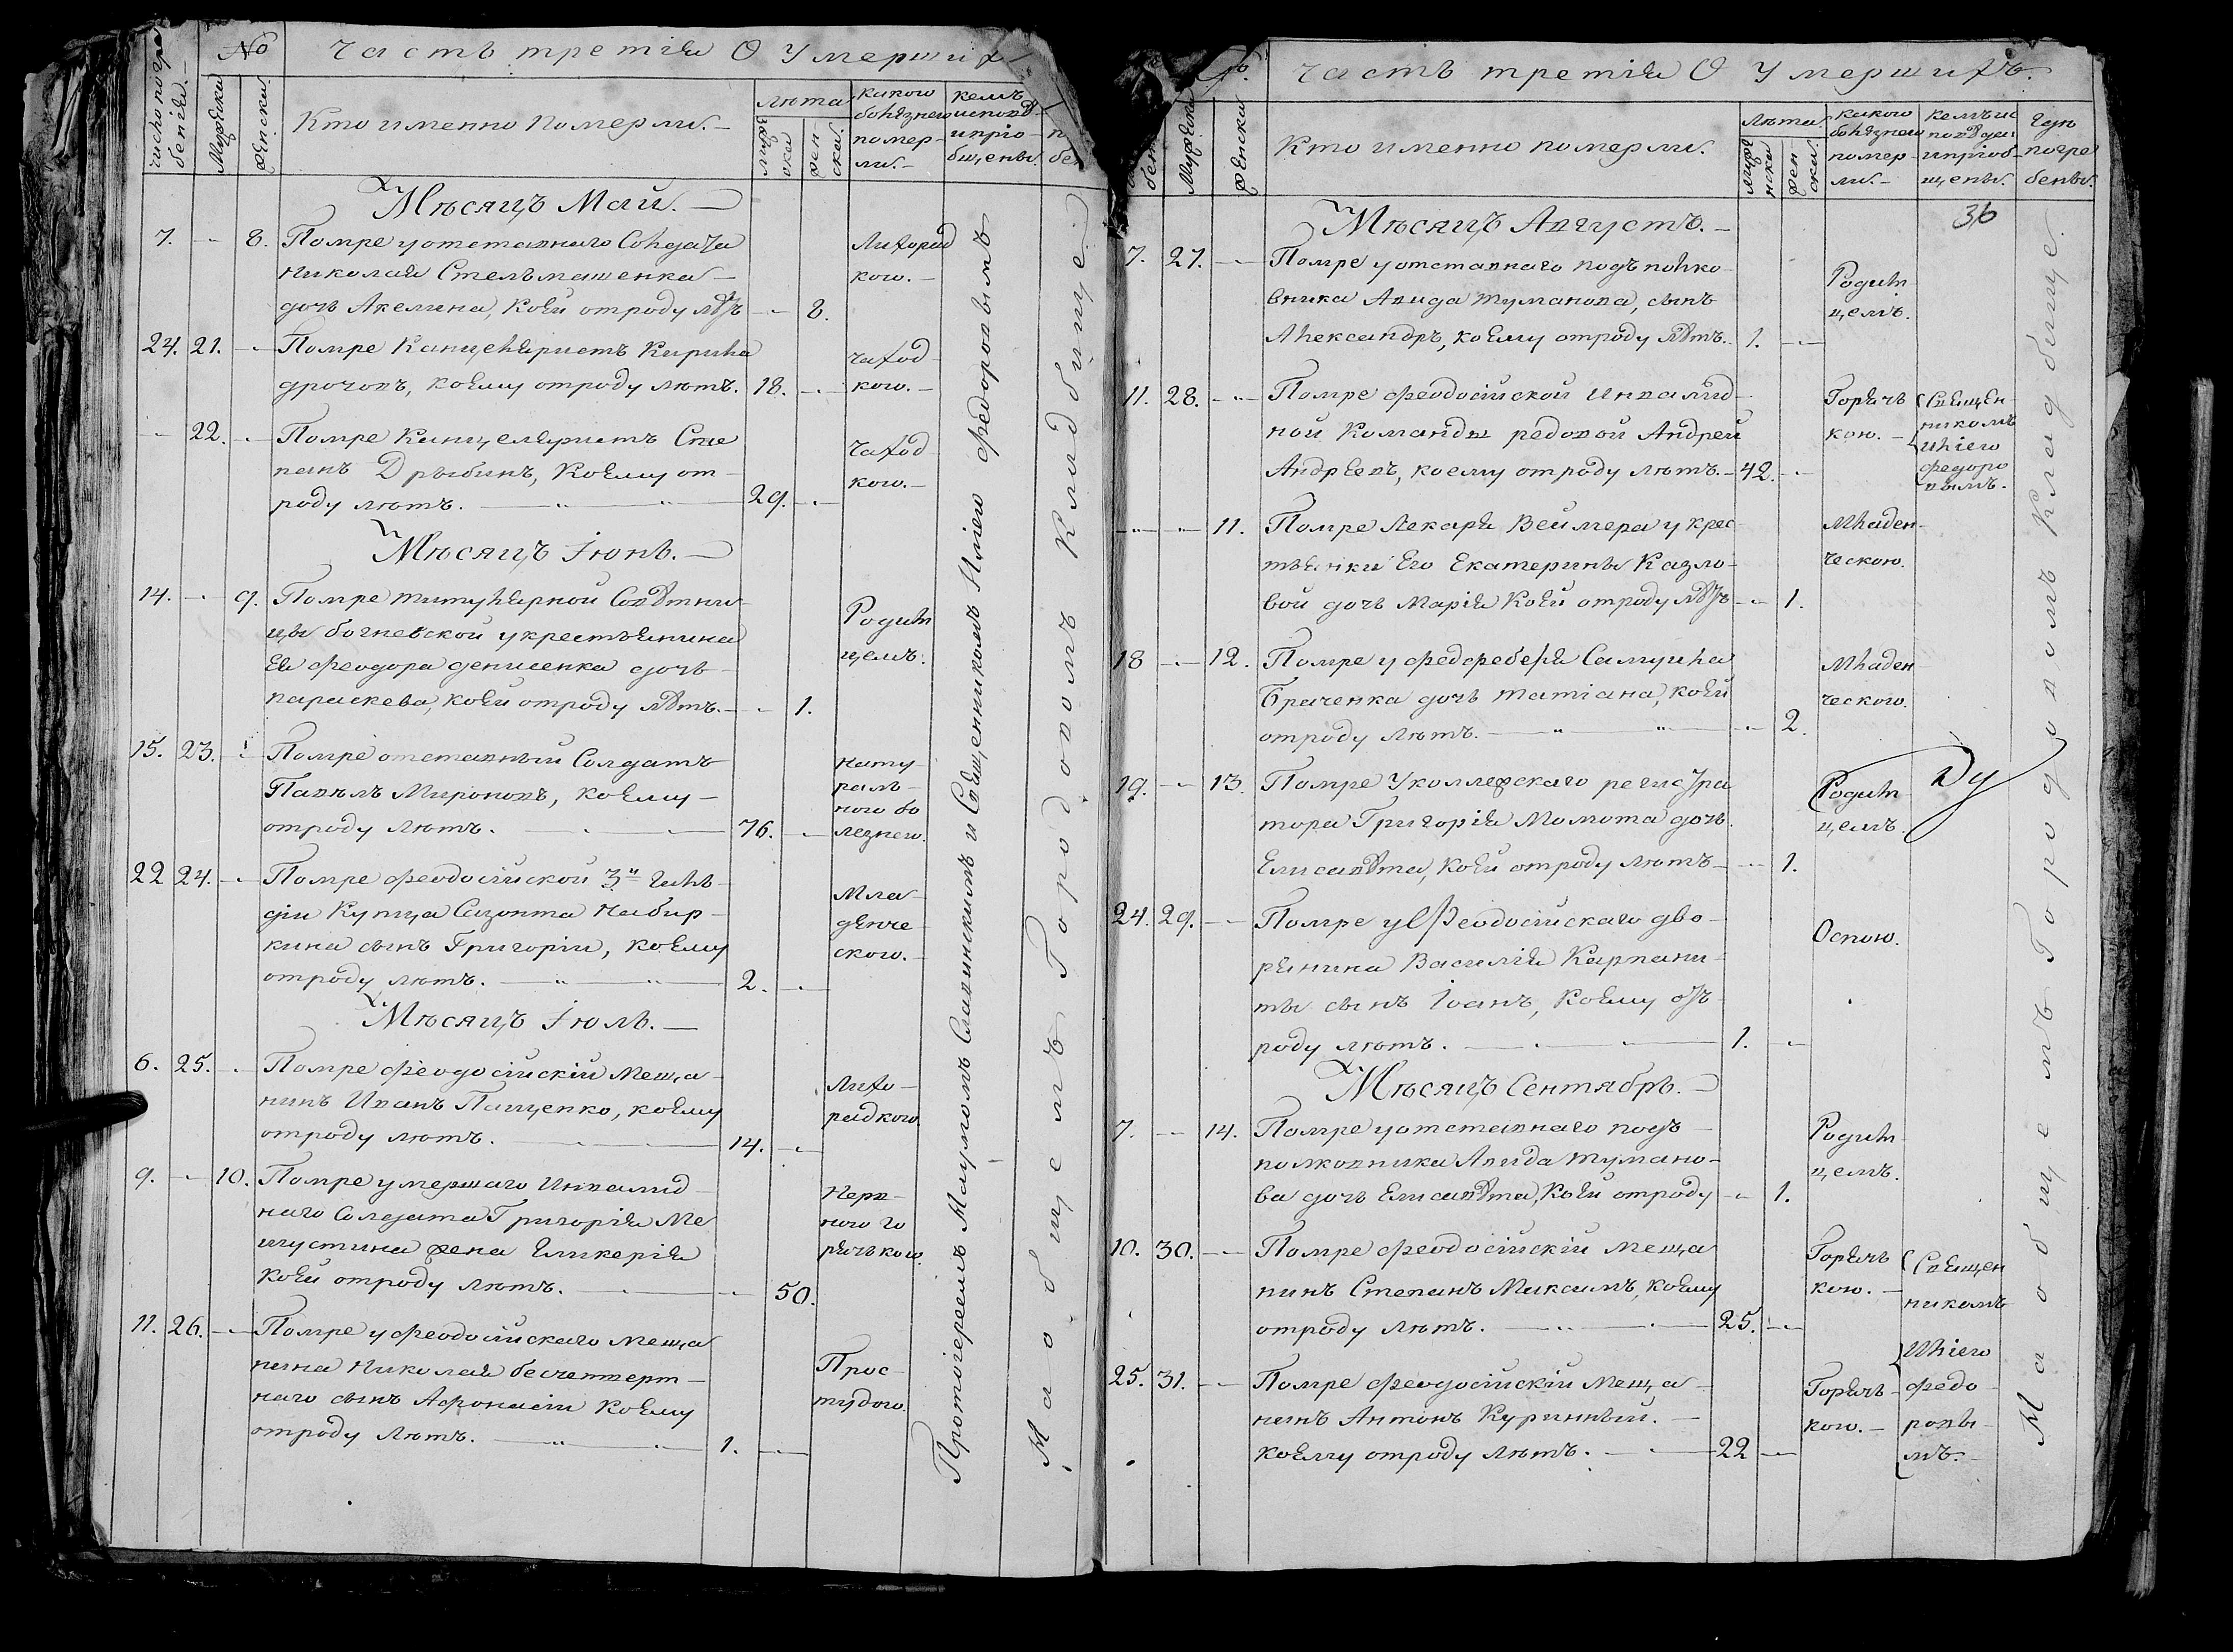 № Часть третiя О Умершихъ
число погре
бенiя.
Мужеска
Женска
Кто именно померли.
Лѣта
жен
ска.
какою
болезнею
помер
ли.
кемъ
исповѣ
и прiо
бщены.
Мѣсяцъ Май.
7. 8. Помре у отставнаго Солдата
Николая Стельмашенка
дочь Акелина, коей отроду лѣтъ 8. Лихорад
кою.
24. 21. Помре Канцеляристъ Кирила
Дрочовъ, коему отроду лѣтъ. 18. чаход
кою.
22. Помре Канцеляристъ Сте
панъ Дрыбинъ, коему от
роду лѣтъ. 29. чаход
кою.
Мѣсяцъ Iюнь.
14. 9. Помре титулярной Совѣтни
цы богневской у крестьянина
Ея Феодора денисенка дочь
параскева, коей отроду лѣтъ. 1. Родим
цемъ.
15. 23. Помре отставный Солдатъ
Павелъ Мироновъ, коему
отроду лѣтъ. 76. нату
раль
ною бо
лезнею.
22 24. Помре Феодосiйской 3й гиль
дiи Купца Сазонта Набир
кина сынъ Григорiи, коему
отроду лѣтъ. 2. Мла
денче
скою.
Мѣсяцъ Iюль.
6. 25. Помре Феодосiйскiй Меща
нинъ Иванъ Пащенко, коему
отроду лѣтъ. 14. Лихо
радкою
9. 10. Помре умершаго Инвалид
наго Солдата Григорiя Ме
шустина жена Гликерiя
коей отроду лѣтъ. 50. Нерв
ною го
рячькою.
11. 26. Помре у Феодосiйскаго Меща
нина Николая бесчетверт
наго сынъ Афонасiи коему
отроду лѣтъ. 1. Прос
тудою.
Протоiереемъ Мауромъ Славинскимъ и Священникомъ Илiею Федоровымъ
На общемъ Городовомъ Кладбище.
№. Часть третiя О Умершихъ.
Мужеска
Женска
Кто именно померли.
Лѣта
муже
нска
жен
ска.
какою
болезнею
помер
ли.
кемъ ис
повѣдан
и прiоб
щены.
Где
погре
бены.
36
Мѣсяцъ Августъ.
7. 27. Помре у отставнаго подъполко
вника Авида туманова, сынъ
Александръ, коему отроду лѣтъ. 1. Родим
цемъ.
11. 28. Помре Феодосiйской Инвалид
ной Команды редовой Андрей
Андреевъ, коему отроду лѣтъ. 42. Горячь
кою. Священ
никомъ
Илiею
Федоро
вымъ.
11. Помре Лекаря Веймера у крес
тьянки Его Екатерины Казло
вой дочь Марiя коей отроду лѣтъ 1. Младен
ческою.
18 12. Помре у Фелфебеля Самуила
Браченка дочь татiана, коей
отроду лѣтъ. 2. Младен
ческою.
19. 13. Помре У коллежскаго регистра
тора Григорiя Момота дочь
Елисавѣта, коей отроду лѣтъ 1. Родим
цемъ.
24. 29. Помре у Феодосiйскаго дво
рянина Василiя Карпани
ты сынъ Iоанъ, коему отъ
роду лѣтъ. 1. Оспою.
Мѣсяцъ Сентябрь.
7. 14. Помре у отставнаго подъ
полковника Авида тумано
ва дочь Елисавѣта, коей отроду 1. Родим
цемъ.
10. 30. Помре Феодосiйскiй меща
нинъ Степанъ Максимъ, коему
отроду лѣтъ. 25. Горячь
кою.
25. 31. Помре Феодосiйскiй Меща
нинъ Антонъ Куринный.
коему отроду лѣтъ. 22 Горячь
кою.
Священ
никомъ
Илiею
Федо
ровы
мъ.
На общемъ Городовомъ Кладбище.